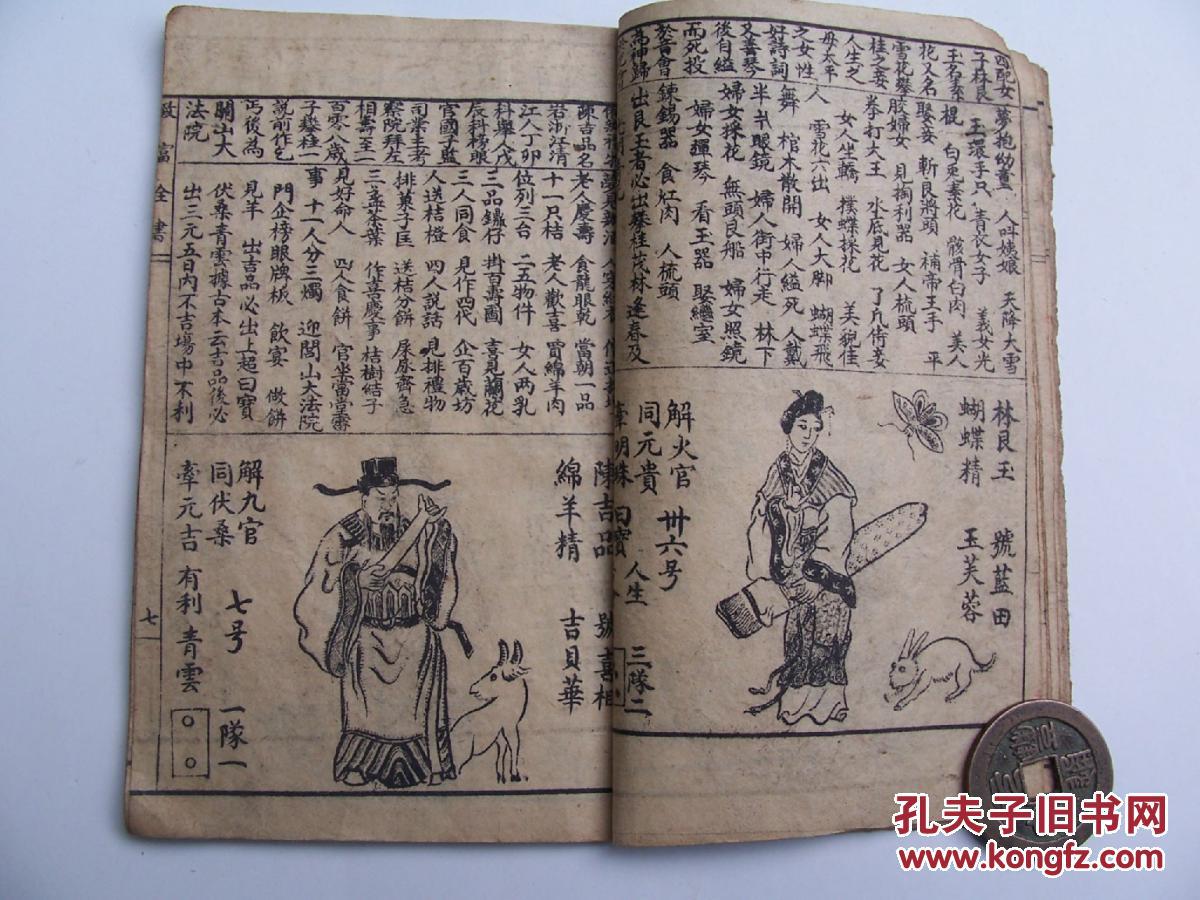 四配女
子林良
玉名棻
花又名
雪花攀
桂之妾
人生之
母太平
之女性
好詩詞
又善琴
後自縊
而死投
為神歸
夢抱幼童 人叫姨娘 天降大雪
玉環手只 青衣女子 義女光
棍 一白兎 棻花 骸骨白肉 美人
娶妾 斬良將頭 補帝王手 平
胶婦女 見掏利器 女人梳頭
拳打大王 水底見花 了凢侍妾
女人坐轎 撲蝶採花 美貌佳
人 雪花六出 女人大脚 蝴蝶飛
舞 棺木散開 婦人縊死 人戴
半斤眼鏡 婦人街中行走 林下
婦女採花 無頭良船 婦女照鏡
婦女揮琴 看玉器 娶繼室
鍊錫器 食灴肉 人梳頭
出良玉者必出攀桂茂林逢春及
林良玉 號藍田
蝴蝶精 玉芙蓉
解火官 卅六号
同元貴
牽明珠 曰寶 人生 三隊二
陳吉品名
若浙江清
江人丁卯
科舉人戊
辰科榜眼
官國子監
司業主考
察院拜左
相壽至一
百零八歲
子攀桂一
說前作乞
丐後為
開山大
法院
老人慶壽 食龍眼乾 當朝一品
十一只桔 老人歡喜 買綿羊肉
位列三台 二五物件 女人两乳
三品鑼仔 掛百壽圖 喜見蘭花
三人同食 見作四代 企百歲坊
人送桔橙 四人說話 見排禮物
排菓子匡 送桔分餅 屎尿齊急
三盃茶葉 作喜慶事 桔樹結子
見好命人 四人食餅 官坐當堂審
事 十一人分三燭 迎閭山大法院
門企榜眼牌板 飲宴 做餅
見羊 出吉品必出上超曰寶
伏桑青雲據古本云吉品後必
出三元五日内不吉場中不利
陳吉品 號喜相
綿羊精 吉貝華
解九官 七号
同伏桑
牽元吉 有利 青雲 一隊一
致富全書
七
孔夫子旧书网
www.kongfz.com